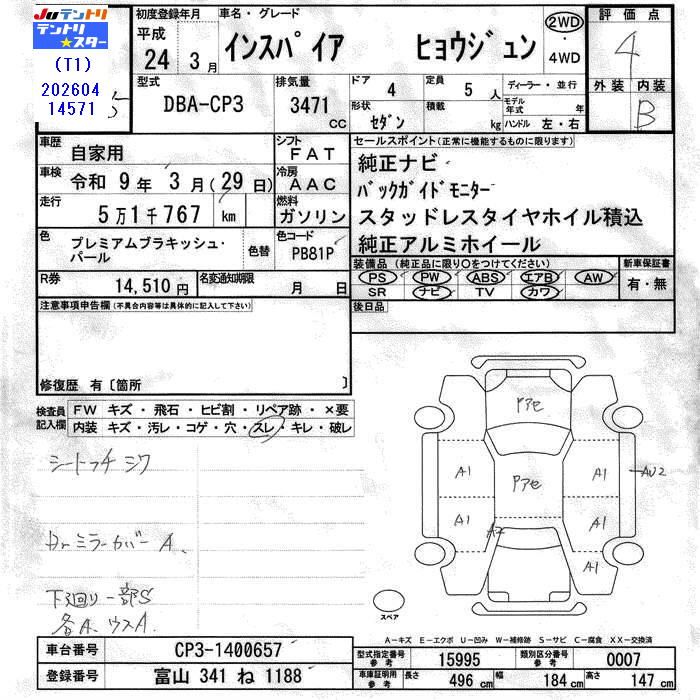 JUテントリ
テントリ
★スター
(T1)
202604
14571
初度登録年月
平成
24年 3月
車名・グレード
インスパイア ヒョウジュン
2WD
・
4WD
評価点
4
外装 内装
B
型式
DBA-CP3
排気量
3471
CC
ドア 4
形状 セダン
定員 5 人
積載 kg
ディーラー・並行
モデル年式 年
ハンドル 左・右
車歴 自家用
シフト FAT
車検 令和 9年 3月(29日)
冷房 AAC
走行 5万1千767 km
燃料 ガソリン
色 プレミアムブラキッシュ・パール
色替
色コード PB81P
R券 14,510円
名変通知期限 月 日
セールスポイント(正常に機能するものに限ります)
純正ナビ
バックガイドモニター
スタッドレスタイヤホイル積込
純正アルミホイール
装備品(純正品に限り〇をつけてください)
PS PW ABS エアB AW
SR ナビ TV カワ
新車保証書
有・無
後日品
注意事項申告欄(不具合内容等は具体的に記入して下さい)
修復歴 有〔箇所 〕
検査員記入欄
FW キズ・飛石・ヒビ割・リペア跡・×要
内装 キズ・汚レ・コゲ・穴・スレ・キレ・破レ
シートッチ シワ
Drミラーカバー A.
下回り一部S
各A、ウスA.
Pアセ
A1
A1
AU2
Pアセ
A1
A1
A2
A1
スペア
A-キズ E-エクボ U-凹み W-補修跡 S-サビ C-腐食 XX-交換済
車台番号 CP3-1400657
登録番号 富山 341 ね 1188
型式指定番号 参考 15995
類別区分番号 参考 0007
車庫証明用 参考 長さ 496 cm 幅 184 cm 高さ 147 cm